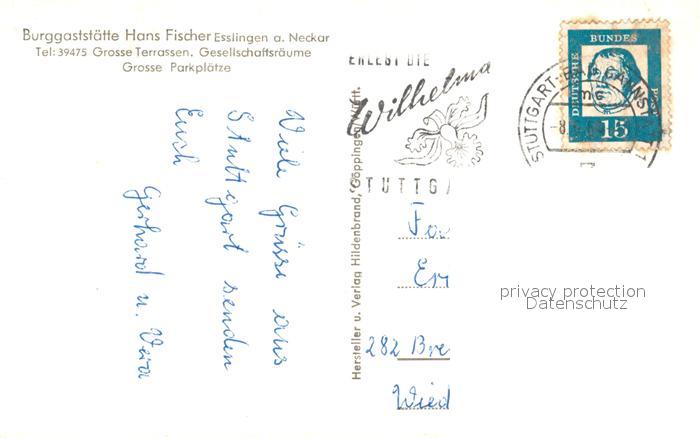 Burggaststätte Hans Fischer Esslingen a. Neckar
Tel: 39475 Grosse Terrassen. Gesellschaftsräume
Grosse Parkplätze
Viele Grüsse aus
Stuttgart senden
Euch
Gerhard u. Vera
Hersteller u. Verlag Hildenbrand, Göppingen/Württ.
ERLEBT DIE
Wilhelma
STUTTGA
STUTTGART-BAD CANNST
-8.
DEUTSCHE BUNDES
15
Fa
Er
282 Bre
Wied
privacy protection
Datenschutz